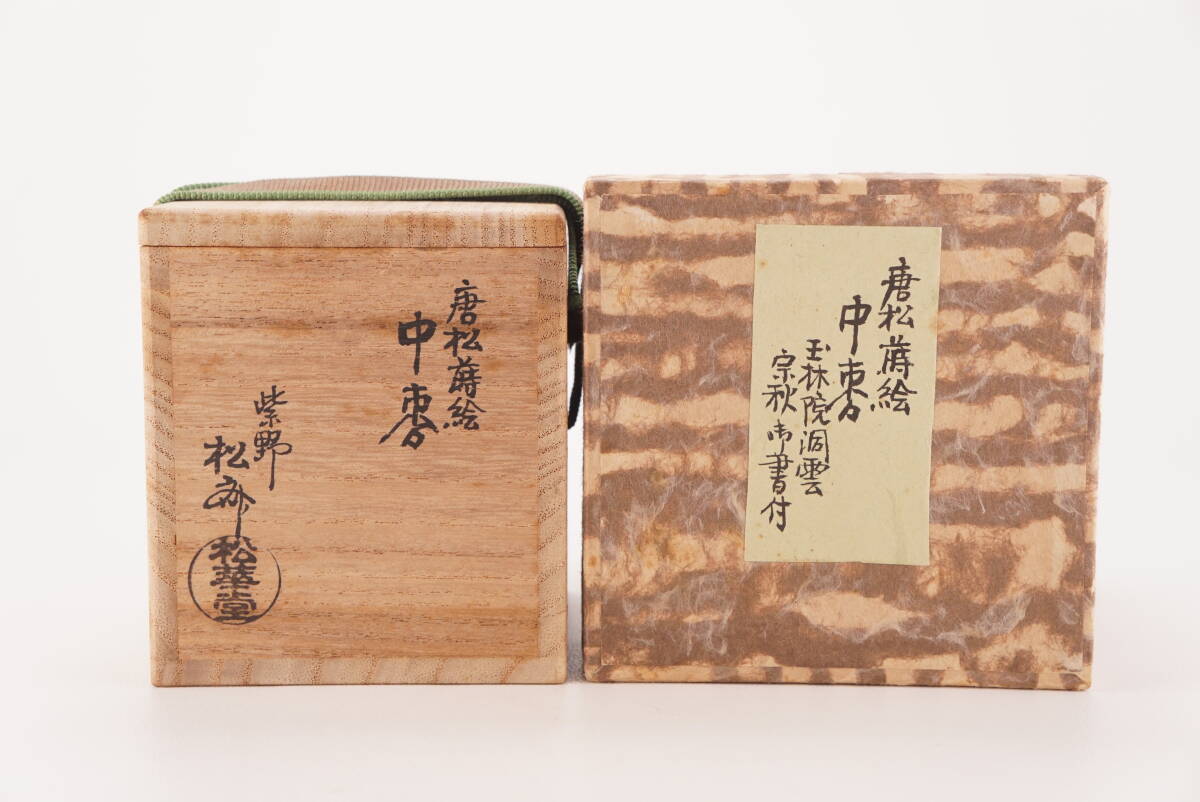 唐松蒔絵
中棗
紫野
松
松華堂
唐松蒔絵
中棗
玉林院洞雲
宗秋御書付